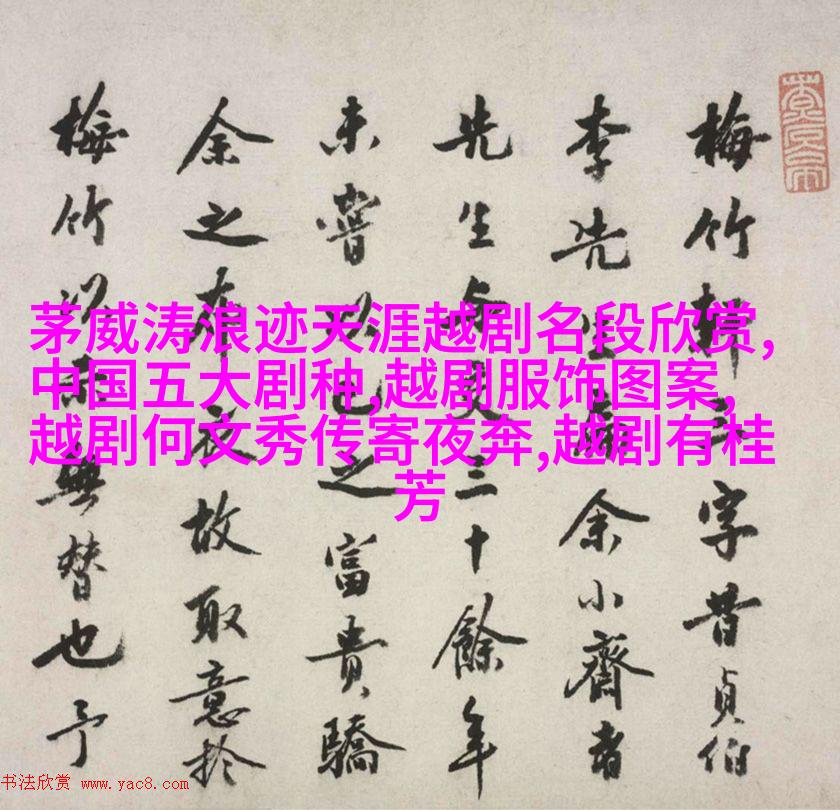 茅威涛浪迹天涯越剧名段欣赏,
中国五大剧种,越剧服饰图案,
越剧何文秀传寄夜奔,越剧有桂
芳
梅竹軒字昔貞伯
李先生余小齋書
先生与交三十餘年
未嘗以己之富貴驕
余之布衣故取意於
梅竹以示無替也予
书法欣赏 www.yac8.com